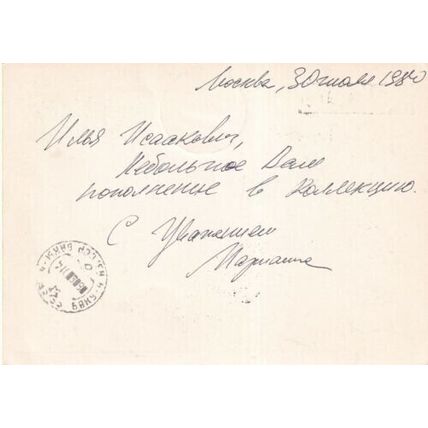 Москва, 30 июля 1980
Илья Исаакович,
Небольшое Вам
пополнение в коллекцию.
С Уважением
Марианна
БАКУ